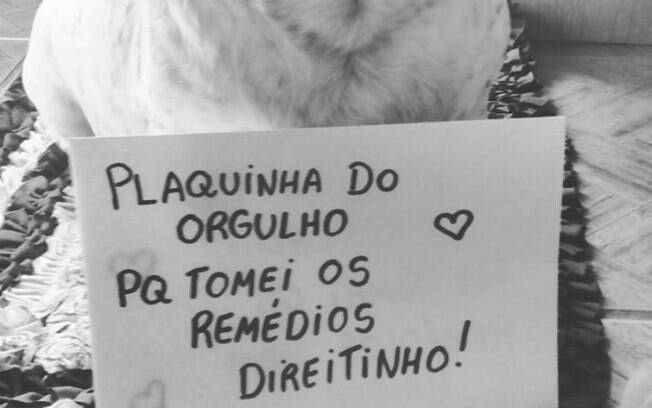 PLAQUINHA DO
ORGULHO
PQ TOMEI OS
REMÉDIOS
DIREITINHO!